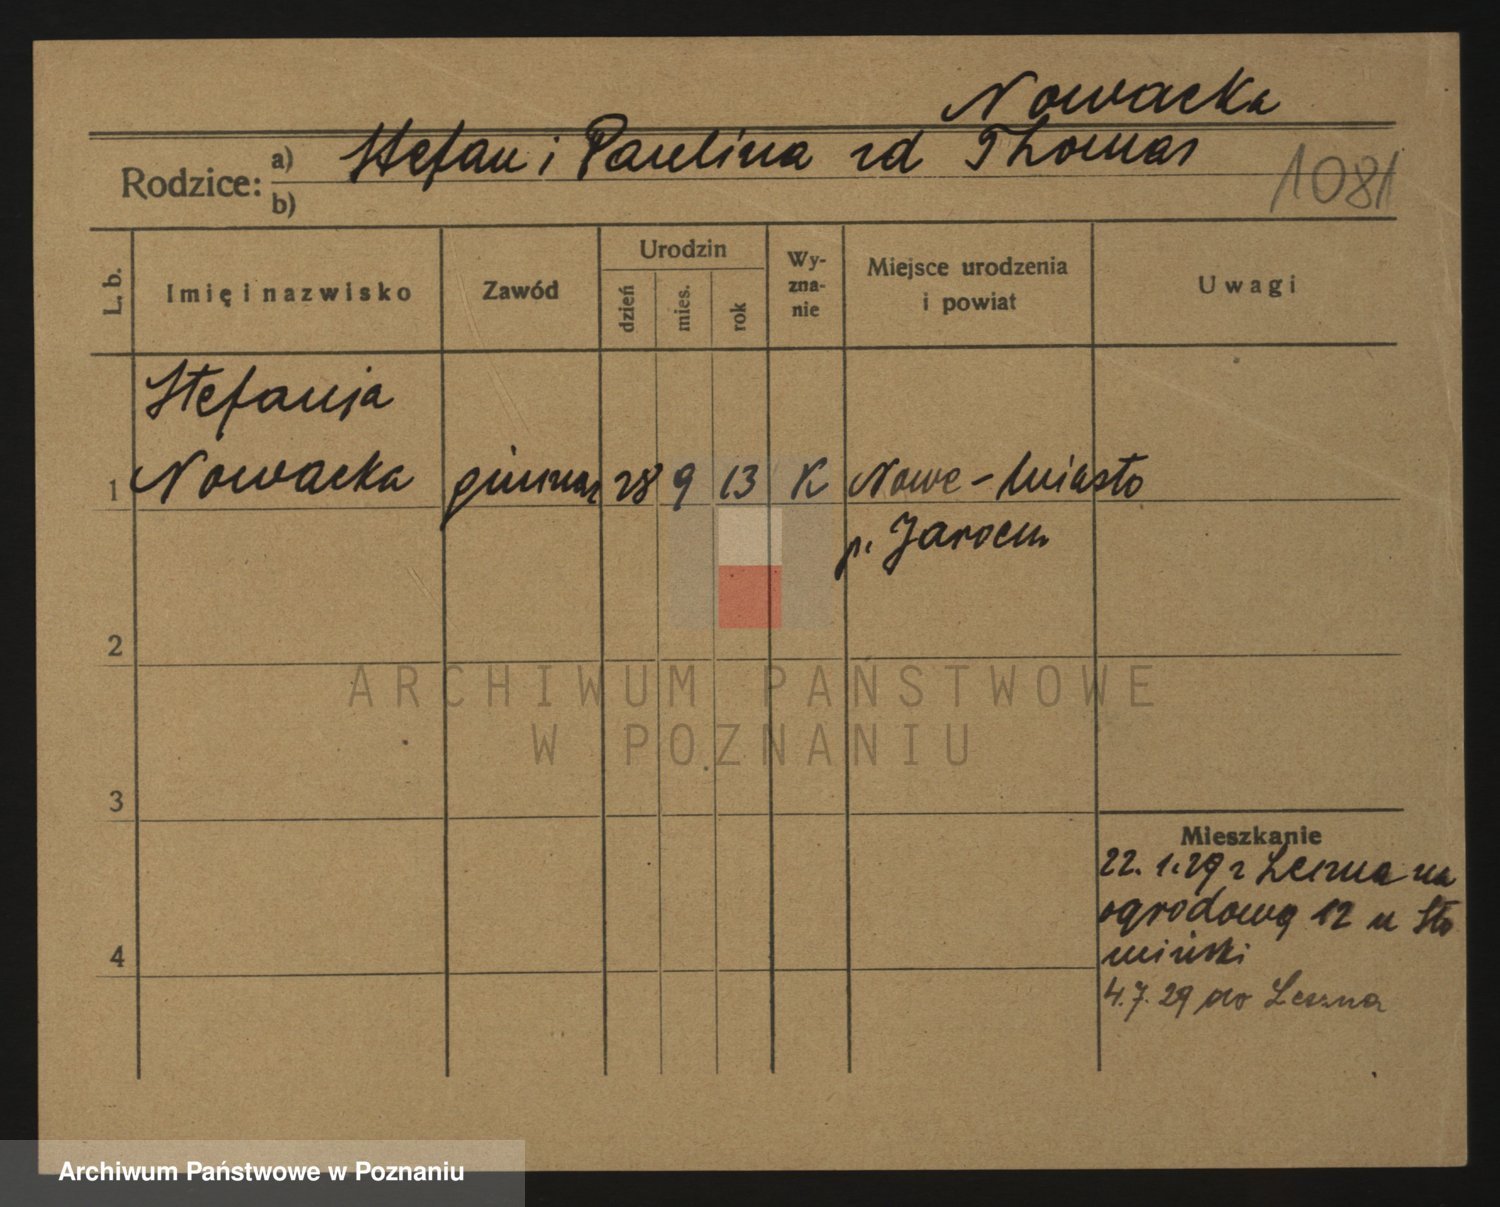 Nowacka
Rodzice: a) Stefan i Paulina zd Thomas
b)
1081
L. b.
Imię i nazwisko
Zawód
Urodzin
dzień
mies.
rok
Wy-
zna-
nie
Miejsce urodzenia
i powiat
Uwagi
Stefanja
1 Nowacka gimnaz 28 9 13 K Nowe-Miasto
p. Jarocin
2
ARCHIWUM PAŃSTWOWE
W POZNANIU
3
Mieszkanie
22. 1. 29 z Leszna na
ogrodową 12 u Sło
miński
4
4. 7. 29 do Leszna
Archiwum Państwowe w Poznaniu